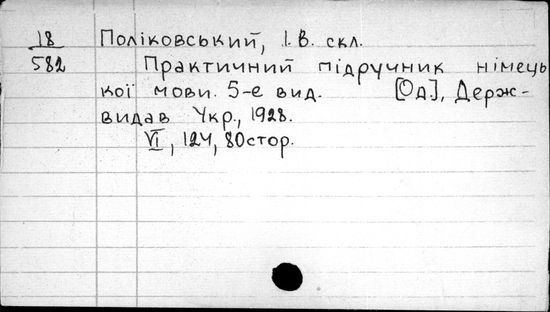 18 Поліковський, І.В. скл.
582 Практичний підручник німець
кої мови. 5-е вид. [Од], Держ-
видав Укр., 1928.
VI, 124, 80стор.